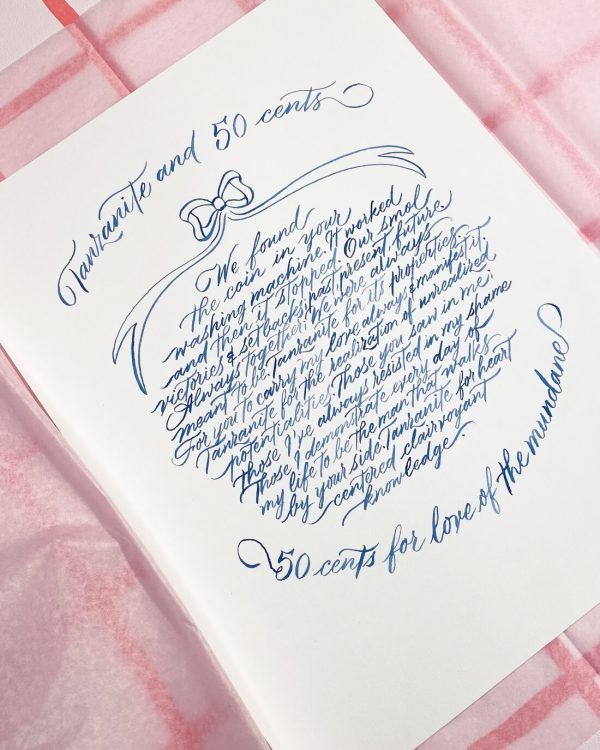 Tanzanite and 50 cents
We found
the coin in your
washing machine. It worked
and then it stopped. Our smol
victories & setbacks, past present future.
Always together. We were always
meant to be. Tanzanite for its properties.
For you to carry my love always & manifest it.
Tanzanite for the realization of unrealized
potentialities. Those you saw in me.
Those I've always resisted in my shame
Those I demonstrate every day of
my life to be the man that walks
by your side. Tanzanite for heart
centered clairvoyant
knowledge.
50 cents for love of the mundane